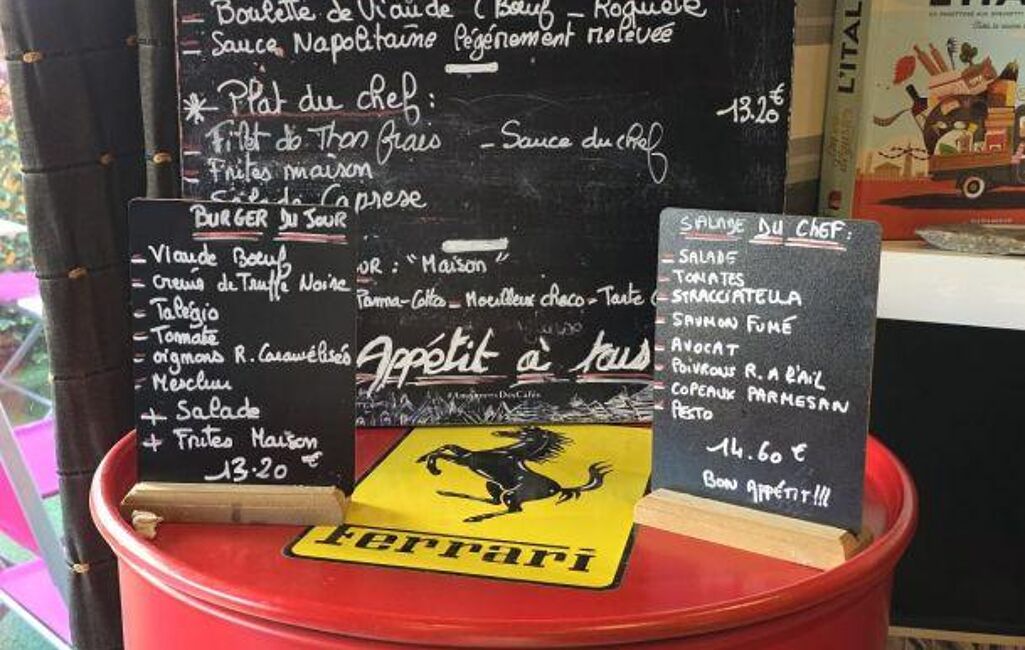 Boulette de Viande (Bœuf - Roquette
Sauce Napolitaine légérement relevée
* Plat du chef : 13.20€
Filet de Thon frais - Sauce du chef
Frites maison
Salade Caprese
: "Maison"
Panna-Cotta - Moelleux choco - Tarte
Appétit à tous
#AmoureuxDesCafés
BURGER DU JOUR
- Viande Boeuf
- creme de Truffe Noire
- Talégio
- Tomate
- oignons R. Caramélisés
- Mesclun
+ Salade
+ Frites Maison
13.20 €
SALADE DU CHEF :
- SALADE
- TOMATES
- STRACCIATELLA
- SAUMON FUMÉ
- AVOCAT
- POIVRONS R. A l'AIL
- COPEAUX PARMESAN
- PESTO
14.60 €
BON APPÉTIT!!!
Ferrari
L'ITAL